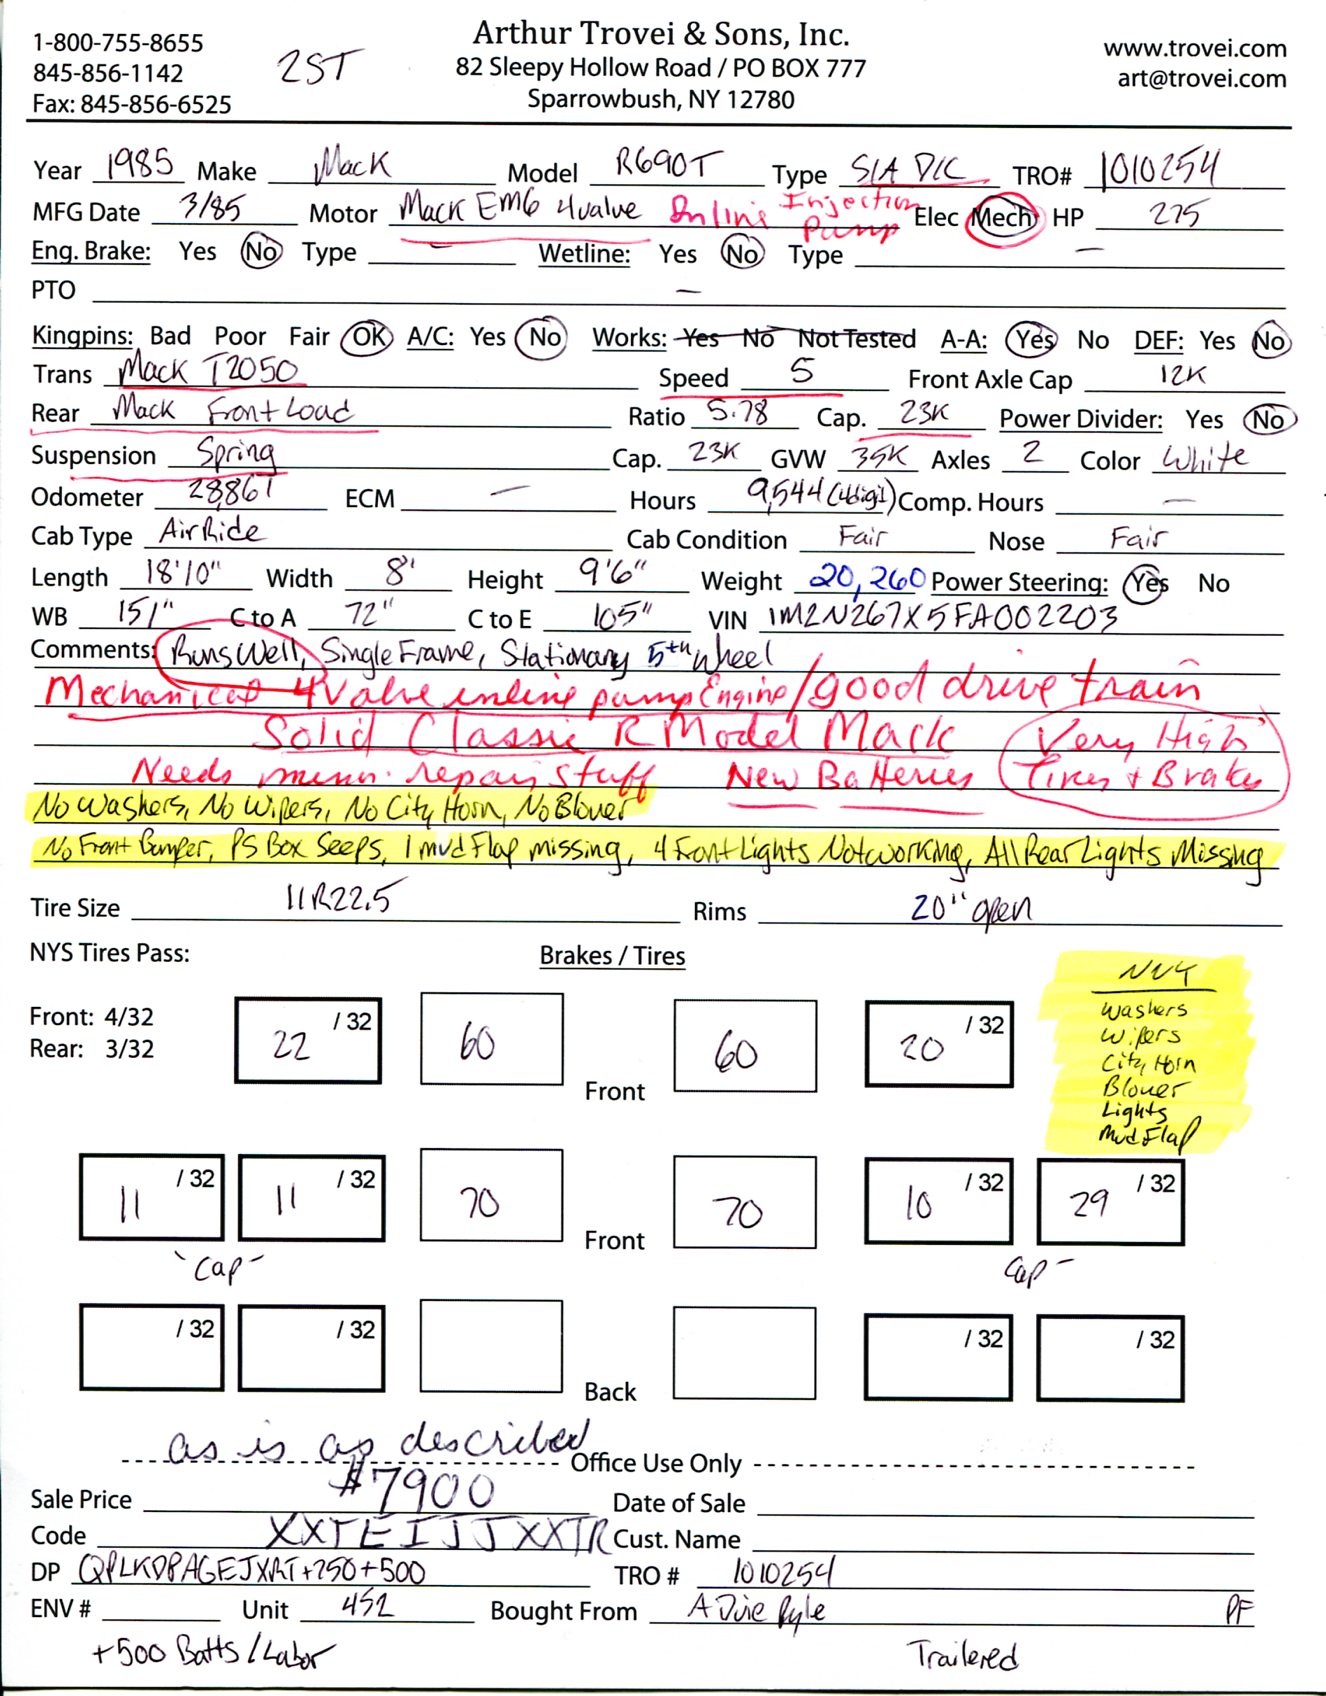 1-800-755-8655
845-856-1142
Fax: 845-856-6525
2ST
Arthur Trovei & Sons, Inc.
82 Sleepy Hollow Road / PO BOX 777
Sparrowbush, NY 12780
www.trovei.com
art@trovei.com
Year 1985 Make Mack Model R690T Type S/A D/C TRO# 1010254
MFG Date 3/85 Motor Mack EM6 4valve Inline Injection Pump Elec Mech HP 275
Eng. Brake: Yes No Type — Wetline: Yes No Type —
PTO —
Kingpins: Bad Poor Fair OK A/C: Yes No Works: Yes No Not Tested A-A: Yes No DEF: Yes No
Trans Mack T2050 Speed 5 Front Axle Cap 12K
Rear Mack Front Load Ratio 5.78 Cap. 23K Power Divider: Yes No
Suspension Spring Cap. 23K GVW 35K Axles 2 Color White
Odometer 28,861 ECM — Hours 9,544 (4digit) Comp. Hours —
Cab Type Air Ride Cab Condition Fair Nose Fair
Length 18'10" Width 8' Height 9'6" Weight 20,260 Power Steering: Yes No
WB 151" C to A 72" C to E 105" VIN 1M2N267X5FA002203
Comments: Runs Well, Single Frame, Stationary 5th Wheel
Mechanical 4 Valve inline pump Engine / good drive train
Solid Classic R Model Mack Very High
Needs minn. repair stuff New Batteries Tires + Brakes
No Washers, No Wipers, No City Horn, No Blower
No Front Bumper, PS Box Seeps, 1 mud Flap missing, 4 Front Lights Not working, All Rear Lights Missing
Tire Size 11R22.5 Rims 20" open
NYS Tires Pass: Brakes / Tires
Front: 4/32
Rear: 3/32
22 /32 60 Front 60 20 /32
NVT
Washers
Wipers
City Horn
Blower
Lights
Mud Flap
11 /32 11 /32 70 Front 70 10 /32 29 /32
-Cap- Cap-
/32 /32 Back /32 /32
as is as described
Office Use Only
Sale Price $7900 Date of Sale
Code XXTEIJJXXTR Cust. Name
DP QPLKDPAGEJXRT+250+500 TRO # 1010254
ENV # Unit 452 Bought From A Duie Pyle PF
+500 Batts/Labor Trailered